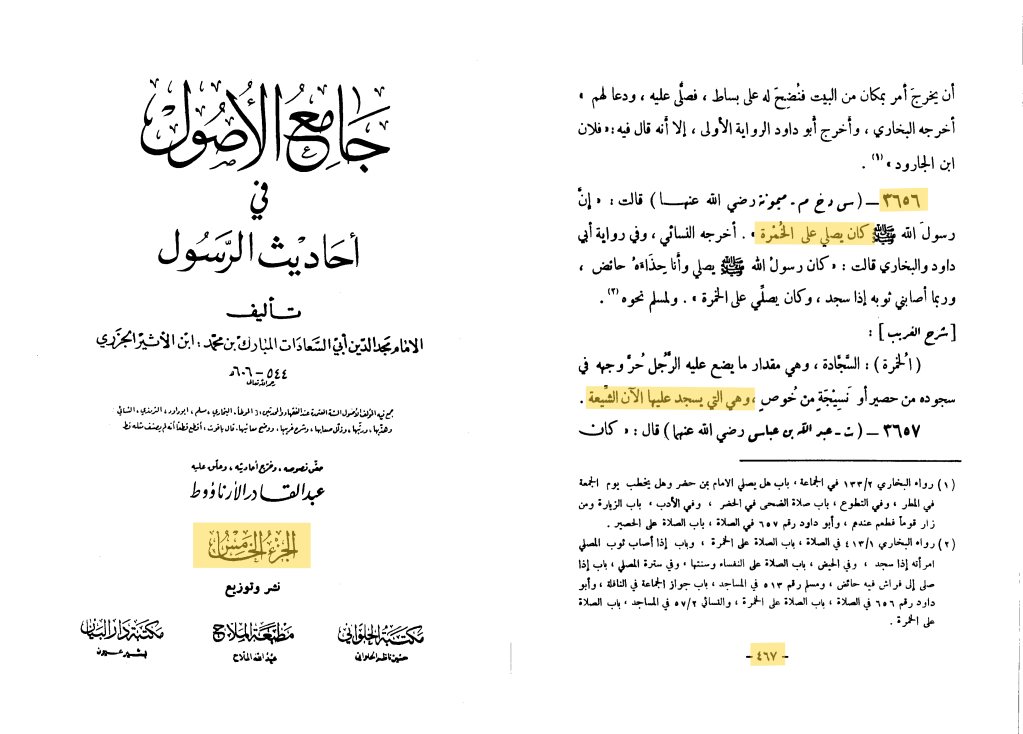 جَامِعُ الأُصُولِ
في
أحَاديْث الرَّسُول
تأليف
الامَام مجد الدّين أبي السَّعادَات المبَارك بن محمّد : ابن الأثير الجَزَري
٥٤٤ - ٦٠٦ هـ
رحمه الله تعالى
حقق نصوصه ، وخرّج أحاديثه ، وعلّق عليه
عبد القادر الأرناؤوط
الجزء الخامس
نشر وتوزيع
مكتبة الحلواني
مطبعة الملاح
مكتبة دار البيان
عبد الله الملاح
بشير عيون
أن يخرجَ أمر بمكان من البيت فنُضِحَ له على بساط ، فصلَّى عليه ، ودعا لهم »
أخرجه البخاري ، وأخرج أبو داود الرواية الأولى ، إلا أنه قال فيه : « فلان
ابن الجارود » (١) .
٣٦٥٦ ــ ( س د خ م ـ ميمونة رضي الله عنهـا ) قالت : « إنَّ
رسولَ الله ﷺ كان يصلي على الخُمْرة » . أخرجه النسائي ، وفي رواية أبي
داود والبخاري قالت : « كان رسولُ الله ﷺ يصلي وأنا حِذَاءَهُ حائض ،
وربما أصابني ثوبه إذا سجد ، وكان يصلِّي على الخمرة » . ولمسلم نحوه (٢) .
[ شرح الغريب ] :
( الخمرة ) : السَّجَّادة ، وهي مقدار ما يضع عليه الرَّجُل حُرَّ وجهه في
سجوده من حصير أو نَسِيْجَةٍ من خُوصٍ ، وهي التي يسجد عليها الآن الشِّيعة .
٣٦٥٧ ــ ( ت ـ عبد الله بن عباس رضي الله عنهما ) قال : « كان
(١) رواه البخاري ١٣٣/٢ في الجماعة ، باب هل يصلي الامام بمن حضر وهل يخطب يوم الجمعة
في المطر ، وفي التطوع ، باب صلاة الضحى في الحضر ، وفي الأدب ، باب الزيارة ومن
زار قوماً فطعم عندهم ، وأبو داود رقم ٦٥٧ في الصلاة ، باب الصلاة على الحصير .
(٢) رواه البخاري ٤١٣/١ في الصلاة ، باب الصلاة على الخمرة ، وباب إذا أصاب ثوب المصلي
امرأته إذا سجد ، وفي الحيض ، باب الصلاة على النفساء وسنتها ، وفي سترة المصلي ، باب إذا
صلى إلى فراش فيه حائض ، ومسلم رقم ٥١٣ في المساجد ، باب جواز الجماعة في النافلة ، وأبو
داود رقم ٦٥٦ في الصلاة ، باب الصلاة على الخمرة ، والنسائي ٥٧/٢ في المساجد ، باب الصلاة
على الخمرة .
- ٤٦٧ -